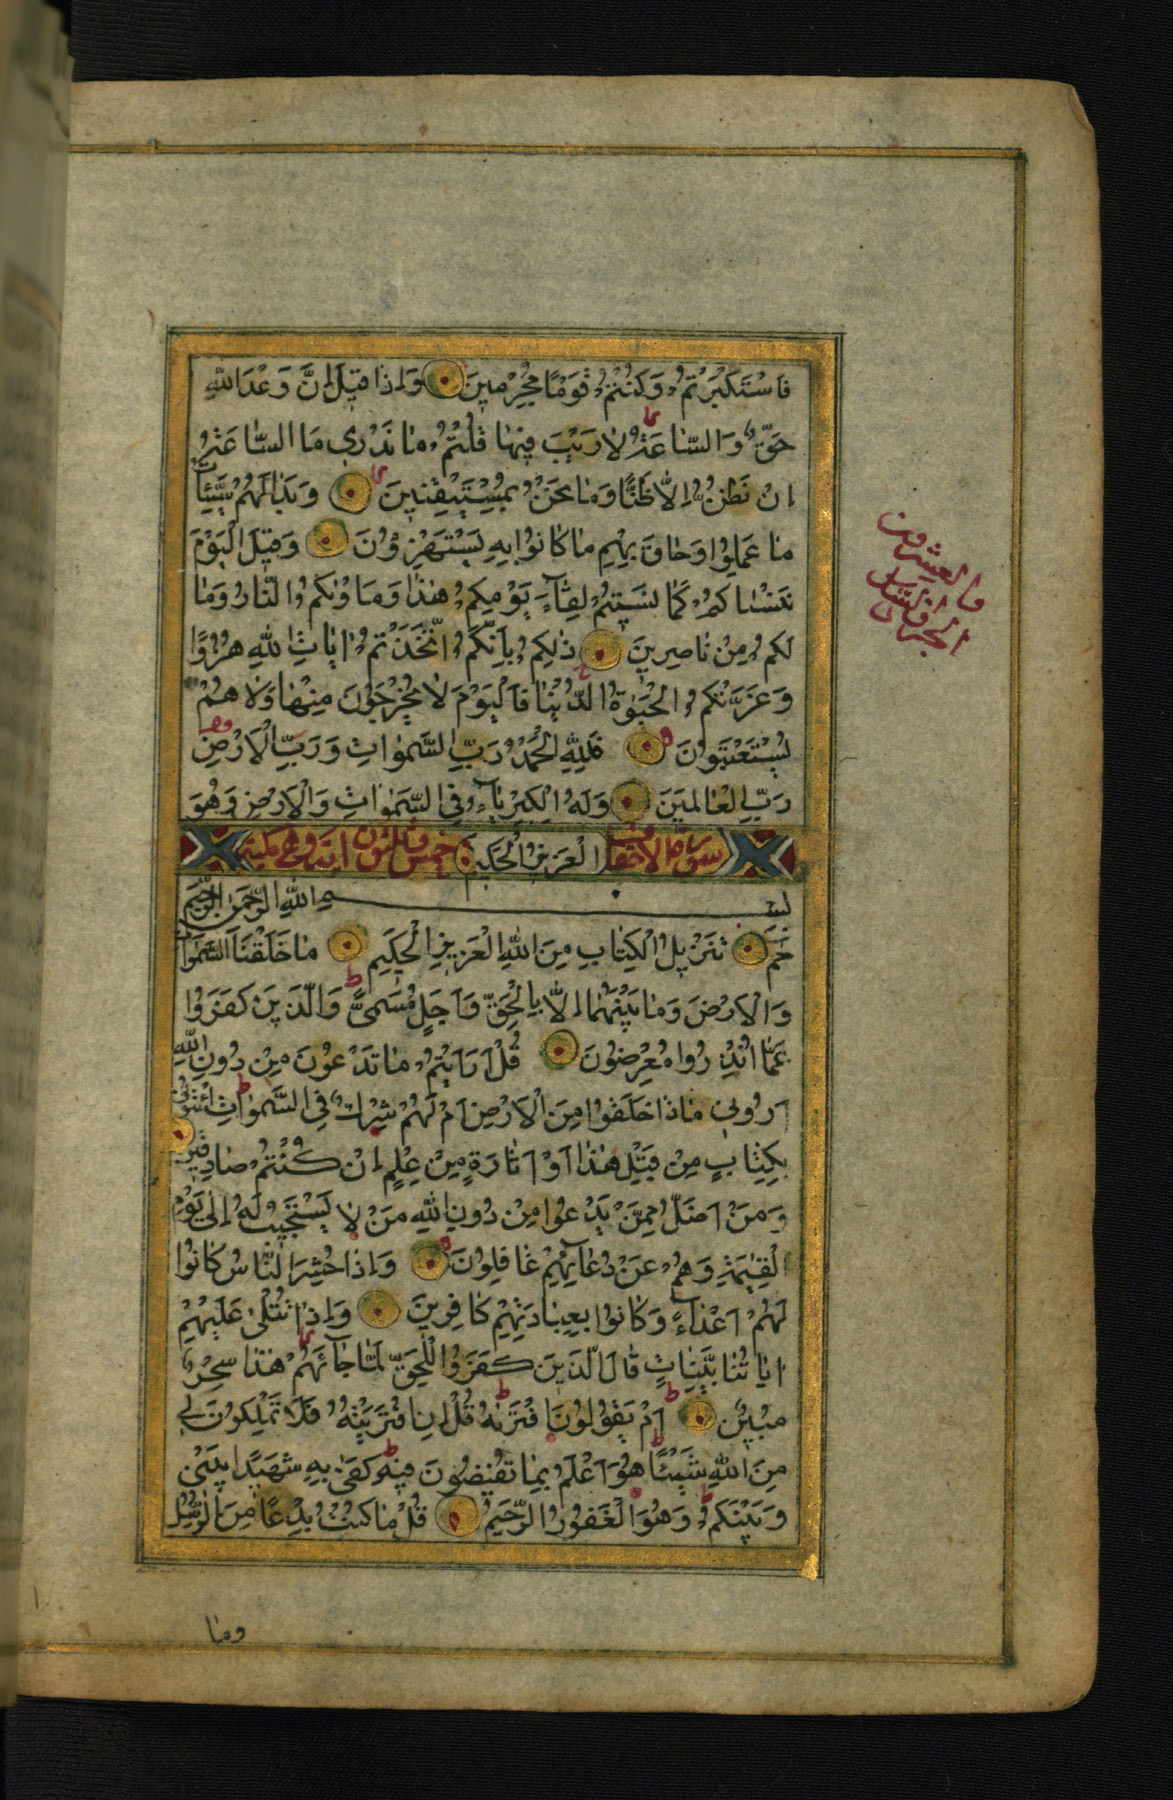 فَاسْتَكْبَرْتُمْ وَكُنْتُمْ قَوْمًا مُجْرِمِينَ وَإِذَا قِيلَ إِنَّ وَعْدَ اللهِ
حَقٌّ وَالسَّاعَةُ لَا رَيْبَ فِيهَا قُلْتُمْ مَا نَدْرِي مَا السَّاعَةُ
إِنْ نَظُنُّ إِلَّا ظَنًّا وَمَا نَحْنُ بِمُسْتَيْقِنِينَ وَبَدَا لَهُمْ سَيِّئَاتُ
مَا عَمِلُوا وَحَاقَ بِهِمْ مَا كَانُوا بِهِ يَسْتَهْزِؤُنَ وَقِيلَ الْيَوْمَ
نَنْسَاكُمْ كَمَا نَسِيتُمْ لِقَاءَ يَوْمِكُمْ هٰذَا وَمَأْوٰىكُمُ النَّارُ وَمَا
لَكُمْ مِنْ نَاصِرِينَ ذٰلِكُمْ بِأَنَّكُمُ اتَّخَذْتُمْ اٰيَاتِ اللهِ هُزُوًا
وَغَرَّتْكُمُ الْحَيٰوةُ الدُّنْيَا فَالْيَوْمَ لَا يُخْرَجُونَ مِنْهَا وَلَا هُمْ
يُسْتَعْتَبُونَ فَلِلّٰهِ الْحَمْدُ رَبِّ السَّمٰوَاتِ وَرَبِّ الْأَرْضِ
رَبِّ الْعَالَمِينَ وَلَهُ الْكِبْرِيَاءُ فِي السَّمٰوَاتِ وَالْأَرْضِ وَهُوَ
سورة الاحقاف الْعَزِيزُ الْحَكِيمُ خمس وثلثون اية وهي مكية
بسم الله الرحمن الرحيم
حٰمٓ تَنْزِيلُ الْكِتَابِ مِنَ اللهِ الْعَزِيزِ الْحَكِيمِ مَا خَلَقْنَا السَّمٰوَاتِ
وَالْأَرْضَ وَمَا بَيْنَهُمَا إِلَّا بِالْحَقِّ وَأَجَلٍ مُسَمًّى وَالَّذِينَ كَفَرُوا
عَمَّا أُنْذِرُوا مُعْرِضُونَ قُلْ أَرَأَيْتُمْ مَا تَدْعُونَ مِنْ دُونِ اللهِ
أَرُونِي مَاذَا خَلَقُوا مِنَ الْأَرْضِ أَمْ لَهُمْ شِرْكٌ فِي السَّمٰوَاتِ ائْتُونِي
بِكِتَابٍ مِنْ قَبْلِ هٰذَا أَوْ أَثَارَةٍ مِنْ عِلْمٍ إِنْ كُنْتُمْ صَادِقِينَ
وَمَنْ أَضَلُّ مِمَّنْ يَدْعُوا مِنْ دُونِ اللهِ مَنْ لَا يَسْتَجِيبُ لَهُ إِلٰى يَوْمِ
الْقِيٰمَةِ وَهُمْ عَنْ دُعَائِهِمْ غَافِلُونَ وَإِذَا حُشِرَ النَّاسُ كَانُوا
لَهُمْ أَعْدَاءً وَكَانُوا بِعِبَادَتِهِمْ كَافِرِينَ وَإِذَا تُتْلٰى عَلَيْهِمْ
اٰيَاتُنَا بَيِّنَاتٍ قَالَ الَّذِينَ كَفَرُوا لِلْحَقِّ لَمَّا جَاءَهُمْ هٰذَا سِحْرٌ
مُبِينٌ أَمْ يَقُولُونَ افْتَرٰىهُ قُلْ إِنِ افْتَرَيْتُهُ فَلَا تَمْلِكُونَ لِي
مِنَ اللهِ شَيْئًا هُوَ أَعْلَمُ بِمَا تُفِيضُونَ فِيهِ كَفٰى بِهِ شَهِيدًا بَيْنِي
وَبَيْنَكُمْ وَهُوَ الْغَفُورُ الرَّحِيمُ قُلْ مَا كُنْتُ بِدْعًا مِنَ الرُّسُلِ
وما